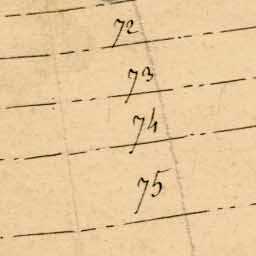 72
73
74
75